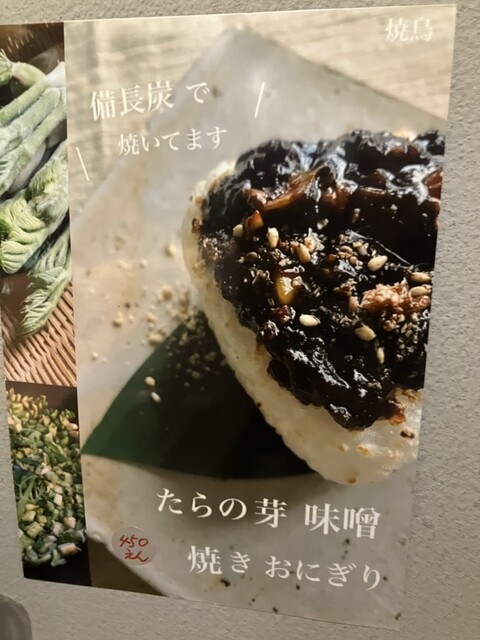 焼鳥
備長炭で
焼いてます
たらの芽 味噌
焼きおにぎり
450
えん